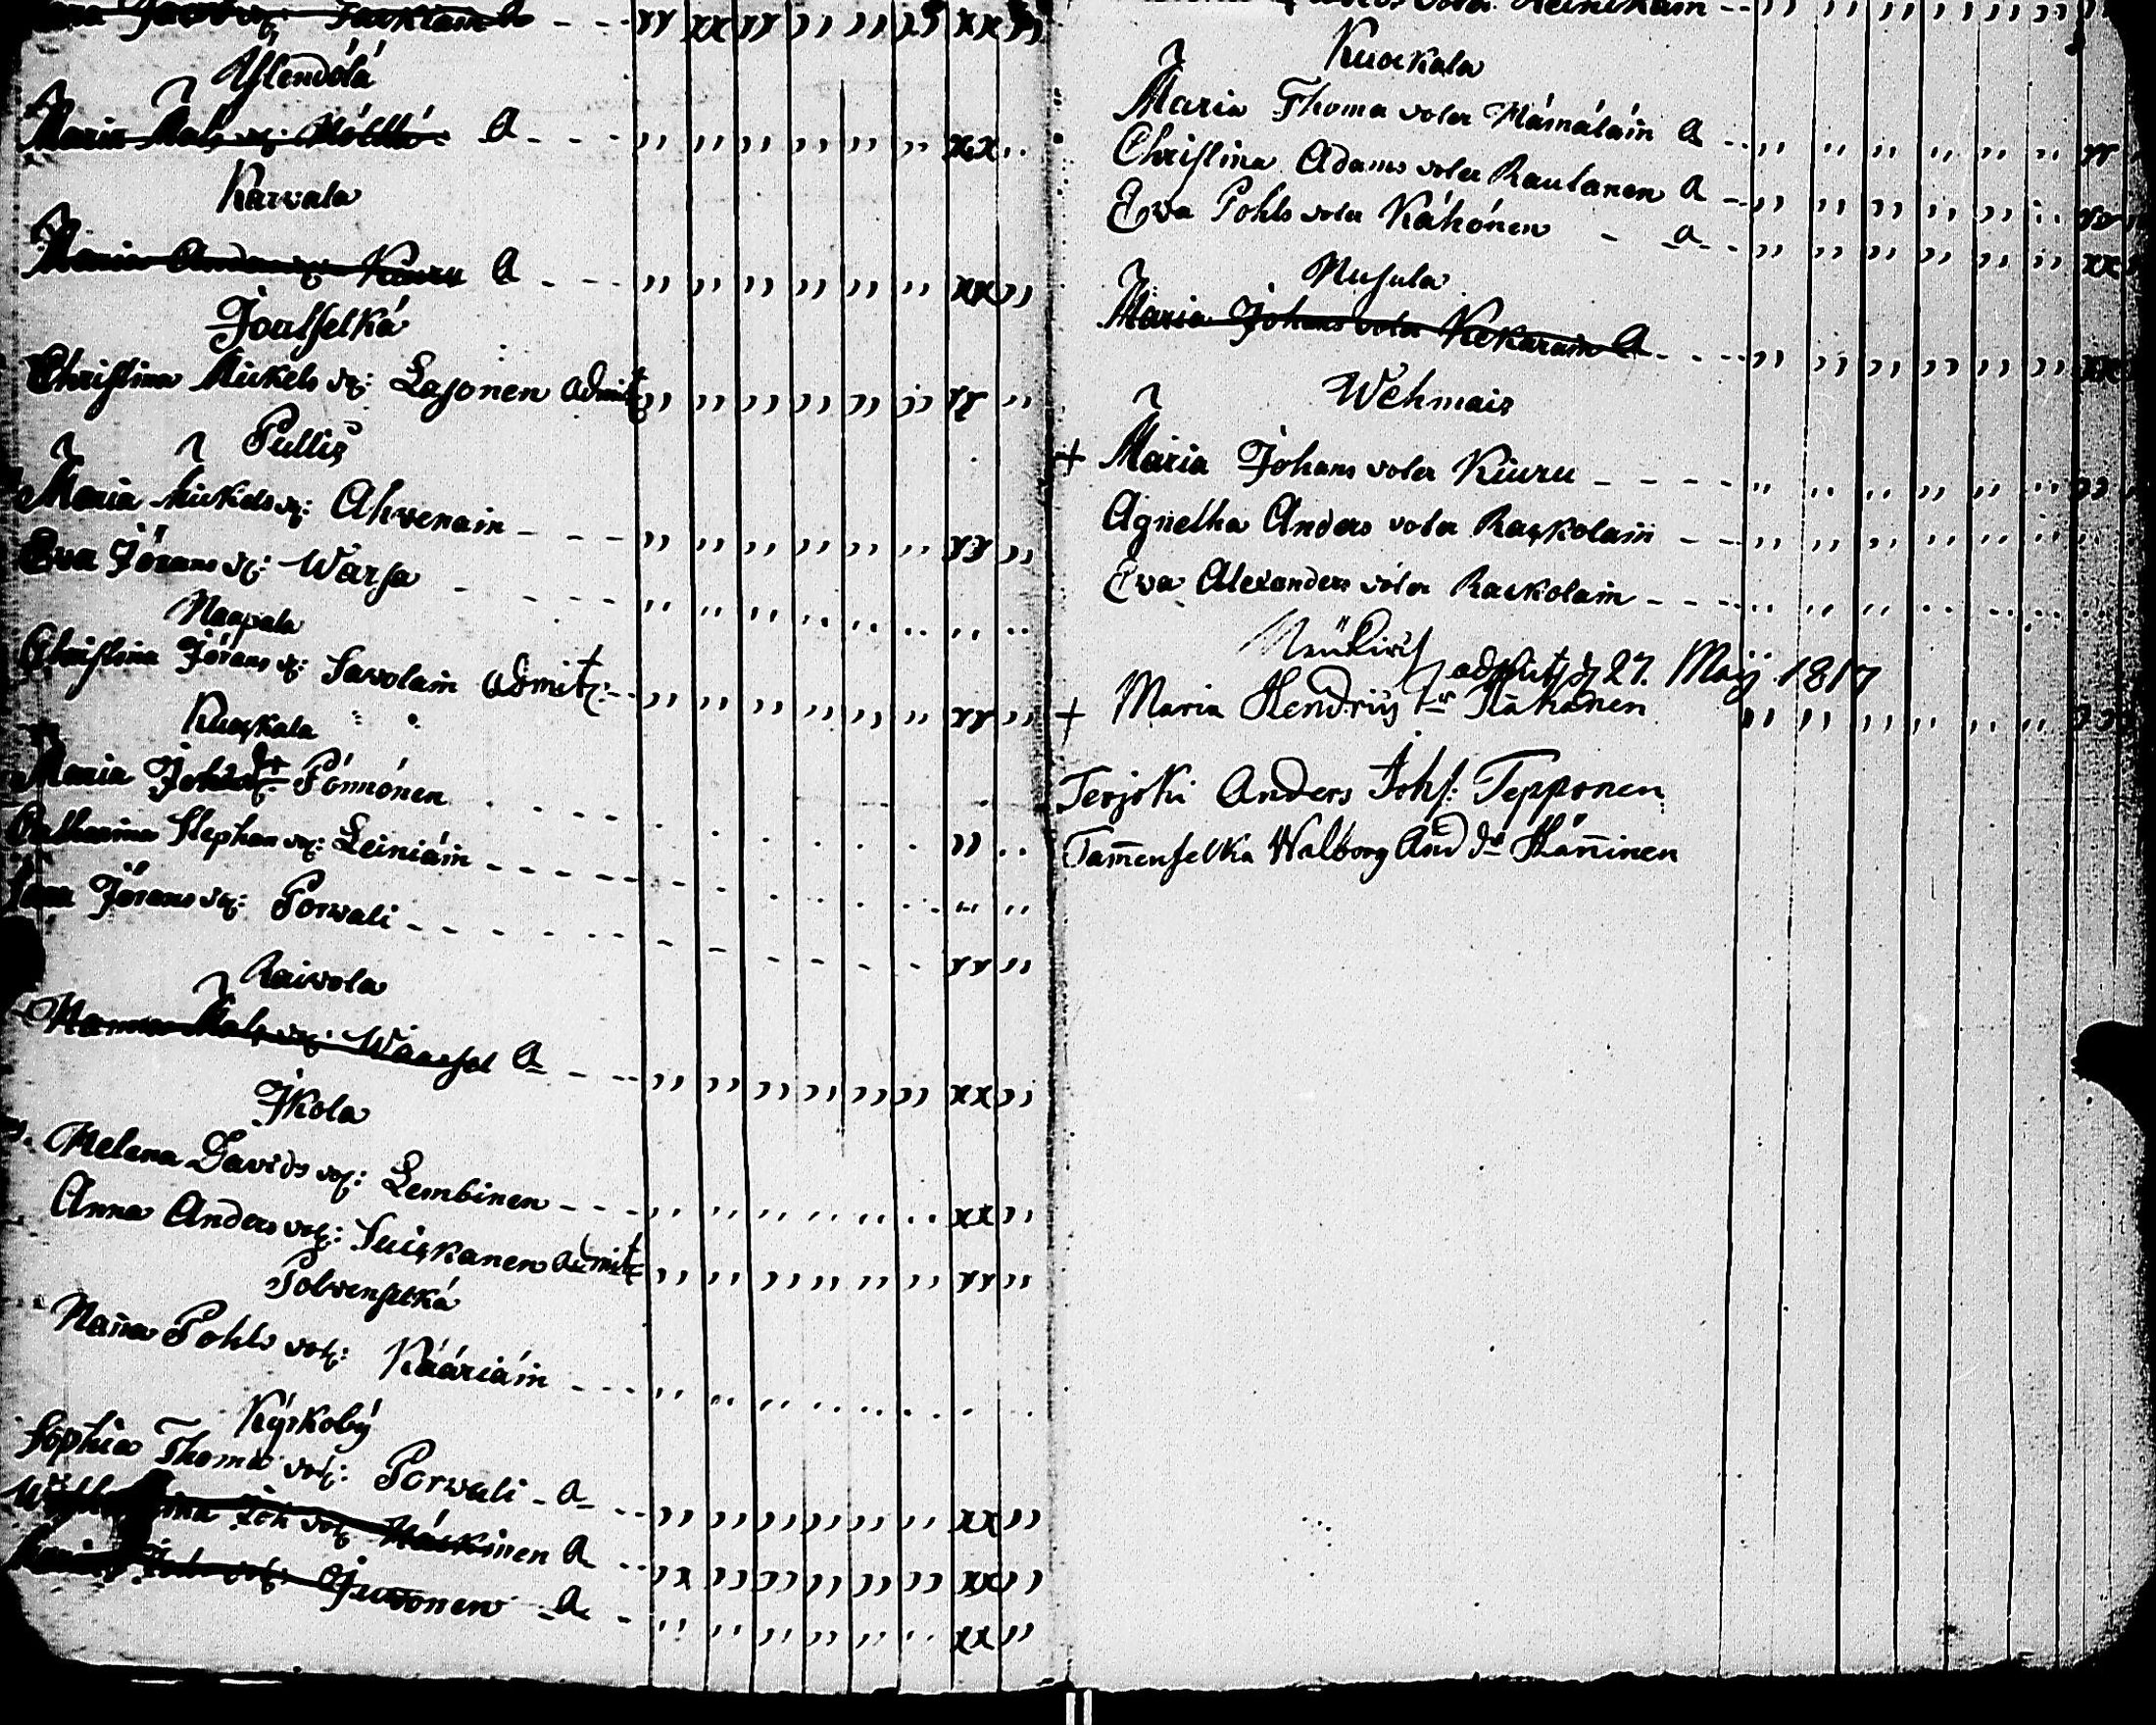 Jacobs Dr:
Yllendólá
Maria Mats dr: A
Karvala
Maria Anders dr: Kiuru A
Joutselká
Christina Mickels dr: Lasonen admit:
Pullis
Maria Mickels dr: Ahvenain
Eva Jörans dr: Warsa
Naapala
Christina Jörans dr: Savolain admit:
Kuoskala
Maria Joh: Pönnönen
Catharina Stephan dr: Leiniáin
Jörans dr: Porvali
Raivola
Mats dr: A
Ikola
Helena Davids dr: Lembinen
Anna Anders dr: Suiskanen admit:
Polvenselká
Nan̄a Pohls dr: Kááriáin
Kyrkoby
Sophia Thomæ dr: Porvali A
Joh dr: Háskinen A
Maria Joh dr: Juvonen A
Kuockala
Maria Thomæ doter Hámáláin A
Christina Adams doter Rautanen A
Eva Pohls doter Káhónen A
Nusula
Maria Johans doter Kekäräin A
Wehmais
+ Maria Johans doter Kiuru
Agnetha Anders doter Raskolain
Eva Alexanders doter Raskolain
Nÿkirk
admit: d 27. Maij 1817
+ Maria Hendrijs tr Kähönen
Terjoki Anders Johs: Tepponen
Tam̄enselka Walborg And dr Hän̄inen